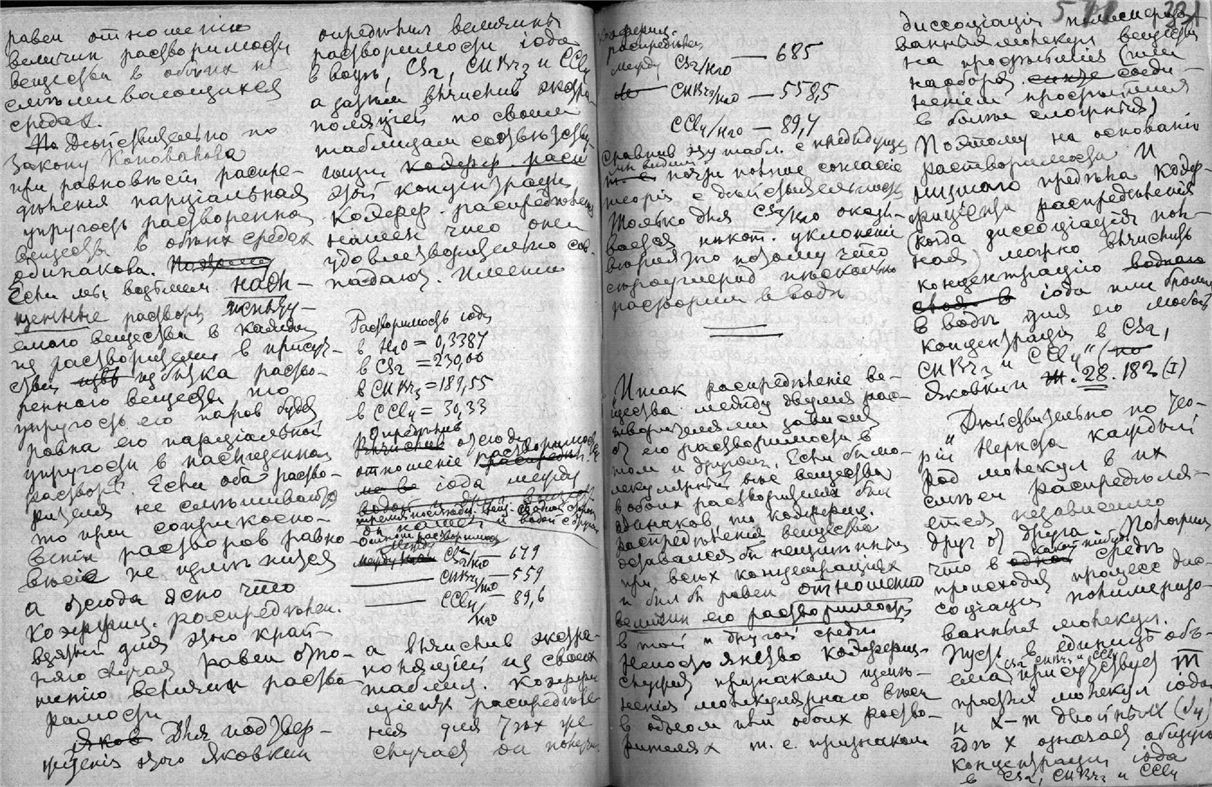 равен отношению
величин растворимости
вещества в обоих не
смешивающихся
средах.
Действительно по
закону Коновалова
при равновесии распре-
деления парциальная
упругость растворенна
вещества в обоих средах
одинакова. Поэтому
Если мы возьмем насы-
щенные растворы
емого вещества в каждом
из растворителей в присут-
ствии избытка раство-
ренного вещества то
упругость его паров будет
равна его парциальной
упругости в насыщенном
растворе. Если оба раство-
рителя не смешиваются
то при соприкосно-
вении растворов равно-
весие не изменится
а отсюда ясно что
коэффиц. распределен.
взятый для этого край-
няго случая равен отно-
шению величин раство-
римости
Яков Для подтвер-
ждения этого Яковкин
определил величины
растворимости иода
в воде, CS2, CHBr3 и CCl4
а затем вычислив экстра-
поляцией по своим
таблицам соответству-
ющий коэфф. расп
этой концентрации
коэфф. распределения
нашел что они
удовлетворительно сов-
падают. Именно
Растворимость иода
в H2O = 0,3387
в CS2 = 230,00
в CHBr3 = 189,55
в CCl4 = 30,33
Определив
Вычислив отсюда
отношение растворимости
иода между
водой
CS2/H2O — 679
CHBr3/H2O — 559
CCl4/H2O — 89,6
а вычислив экстра-
поляцией из своих
таблиц. Коэффи
циенты распределе-
ния для тех же
случаев он получил
Коэффиц.
распределения
между
CS2/H2O — 685
CHBr3/H2O — 558,5
CCl4/H2O — 89,7
Сравнив эту табл. с предыдущ
мы видим
почти полное согласие
теории с действительность
Только для CS2/H2O оказы-
вается некот. уклонение
вероятно потому что
сероуглерод несколько
растворим в воде
Итак распределение ве-
щества между двумя рас-
творителями зависит
от его растворимости в
том и другом. Если бы мо-
лекулярный вес вещества
в обоих растворителях был
одинаков то коэффиц.
распределения вещества
оставался бы неизменным
при всех концентрациях
и был бы равен отношению
величин его растворимости
в той и другой среде
Непостоянство коэффиц-
служит признаком изме-
нения молекулярного веса
в одном или обоих раство-
рителях т. е. признаком
диссоциации полимеризо
ванных молекул вещества
на простейшия (или
наоборот соеди-
нением простейших
в более сложныя)
Поэтому на основании
растворимости и
предела коэф-
фициента распределения
(когда диссоциация пол-
ная) можно вычислить
концентрацию
иода или брома
в воде для его любой
концентрации в CS2,
CHBr3 и CCl4
Яковкин 28. 182 (I)
„Действительно по тео-
рии Нернста каждый
род молекул в их
смеси распределя-
ется независимо
друг от друга. Положим
что в какой нибудь среде
происходит процесс дис-
социации полимеризо-
ванных молекул.
Пусть в единице объ-
ема CS2, CHBr3 и CCl4
присутствует m
простых молекул иода
и x-m двойных (J4)
где x означает общую
концентрацию иода
в CS2, CHBr3 и CCl4